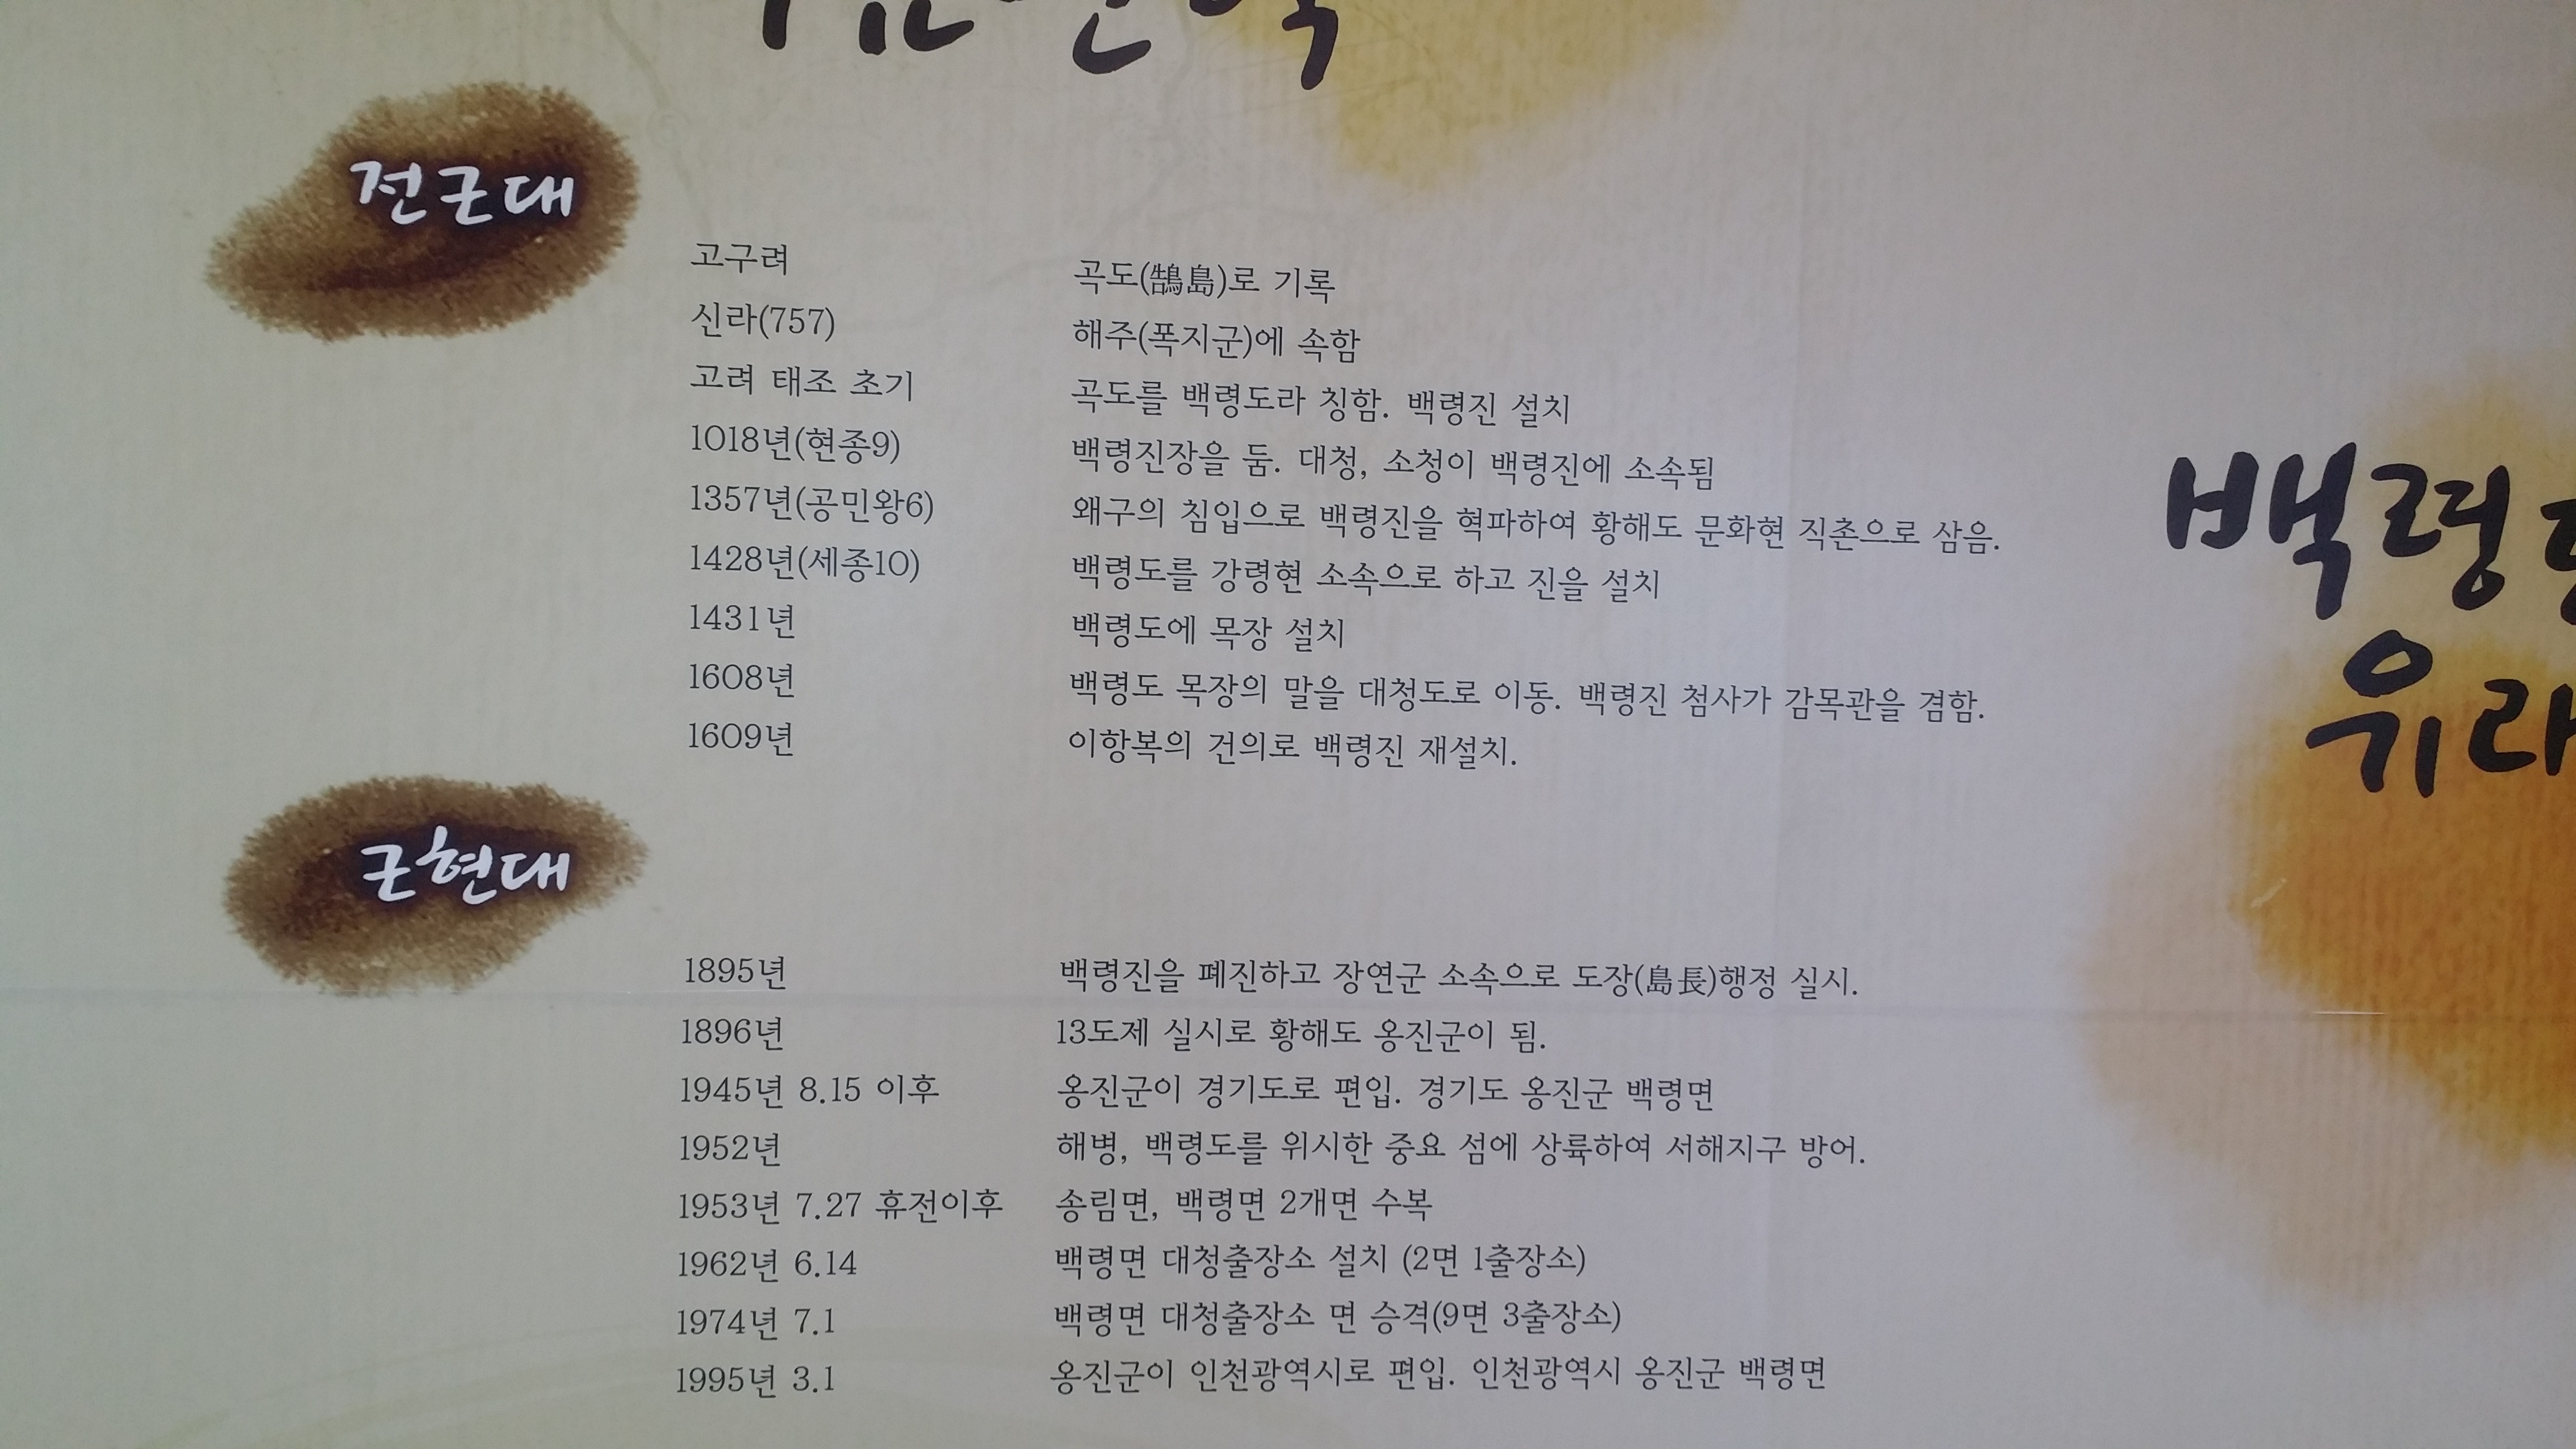 전근대
고구려 곡도(鵠島)로 기록
신라(757) 해주(폭지군)에 속함
고려 태조 초기 곡도를 백령도라 칭함. 백령진 설치
1018년(현종9) 백령진장을 둠. 대청, 소청이 백령진에 소속됨
1357년(공민왕6) 왜구의 침입으로 백령진을 혁파하여 황해도 문화현 직촌으로 삼음.
1428년(세종10) 백령도를 강령현 소속으로 하고 진을 설치
1431년 백령도에 목장 설치
1608년 백령도 목장의 말을 대청도로 이동. 백령진 첨사가 감목관을 겸함.
1609년 이항복의 건의로 백령진 재설치.
근현대
1895년 백령진을 폐진하고 장연군 소속으로 도장(島長)행정 실시.
1896년 13도제 실시로 황해도 옹진군이 됨.
1945년 8.15 이후 옹진군이 경기도로 편입. 경기도 옹진군 백령면
1952년 해병, 백령도를 위시한 중요 섬에 상륙하여 서해지구 방어.
1953년 7.27 휴전이후 송림면, 백령면 2개면 수복
1962년 6.14 백령면 대청출장소 설치 (2면 1출장소)
1974년 7.1 백령면 대청출장소 면 승격(9면 3출장소)
1995년 3.1 옹진군이 인천광역시로 편입. 인천광역시 옹진군 백령면
백령